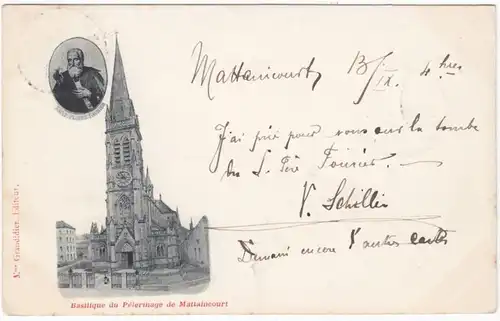 Mattaincourt 13/IX. 4 hres
J'ai prié pour vous sur la tombe
du S. Père Fourier. —
V. Schillis
Demain encore 5 autres cartes
Vve Granddidier, Editeur,
Basilique du Pélerinage de Mattaincourt